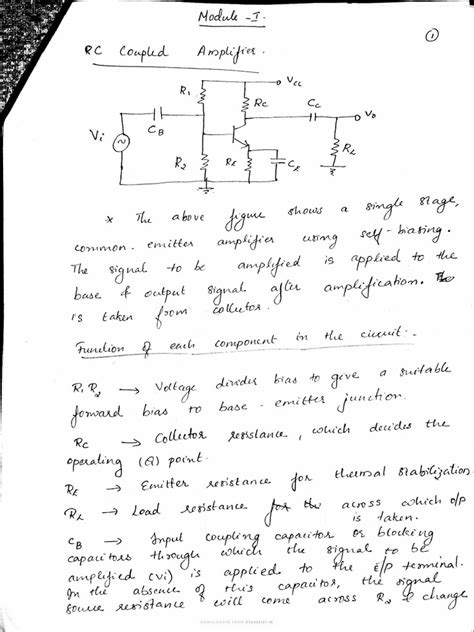 Module - I.
1
RC Coupled Amplifier.
Vcc
R1
Rc
Cc
Vo
CB
Vi
RL
R2
RE
CE
* The above figure shows a single stage,
common-emitter amplifier using self-biasing.
The signal to be amplified is applied to the
base & output signal after amplification.
is taken from collector.
Function of each component in the circuit:-
R1 R2 → Voltage divider bias to give a suitable
forward bias to base-emitter junction.
RC → Collector resistance, which decides the
operating (Q) point.
RE → Emitter resistance for thermal stabilization
RL → Load resistance for the across which o/p
is taken.
CB → Input coupling capacitor or blocking
capacitors through which the signal to be
amplified (vi) is applied to the i/p terminal.
In the absence of this capacitor, the signal
source resistance will come across R2 & change